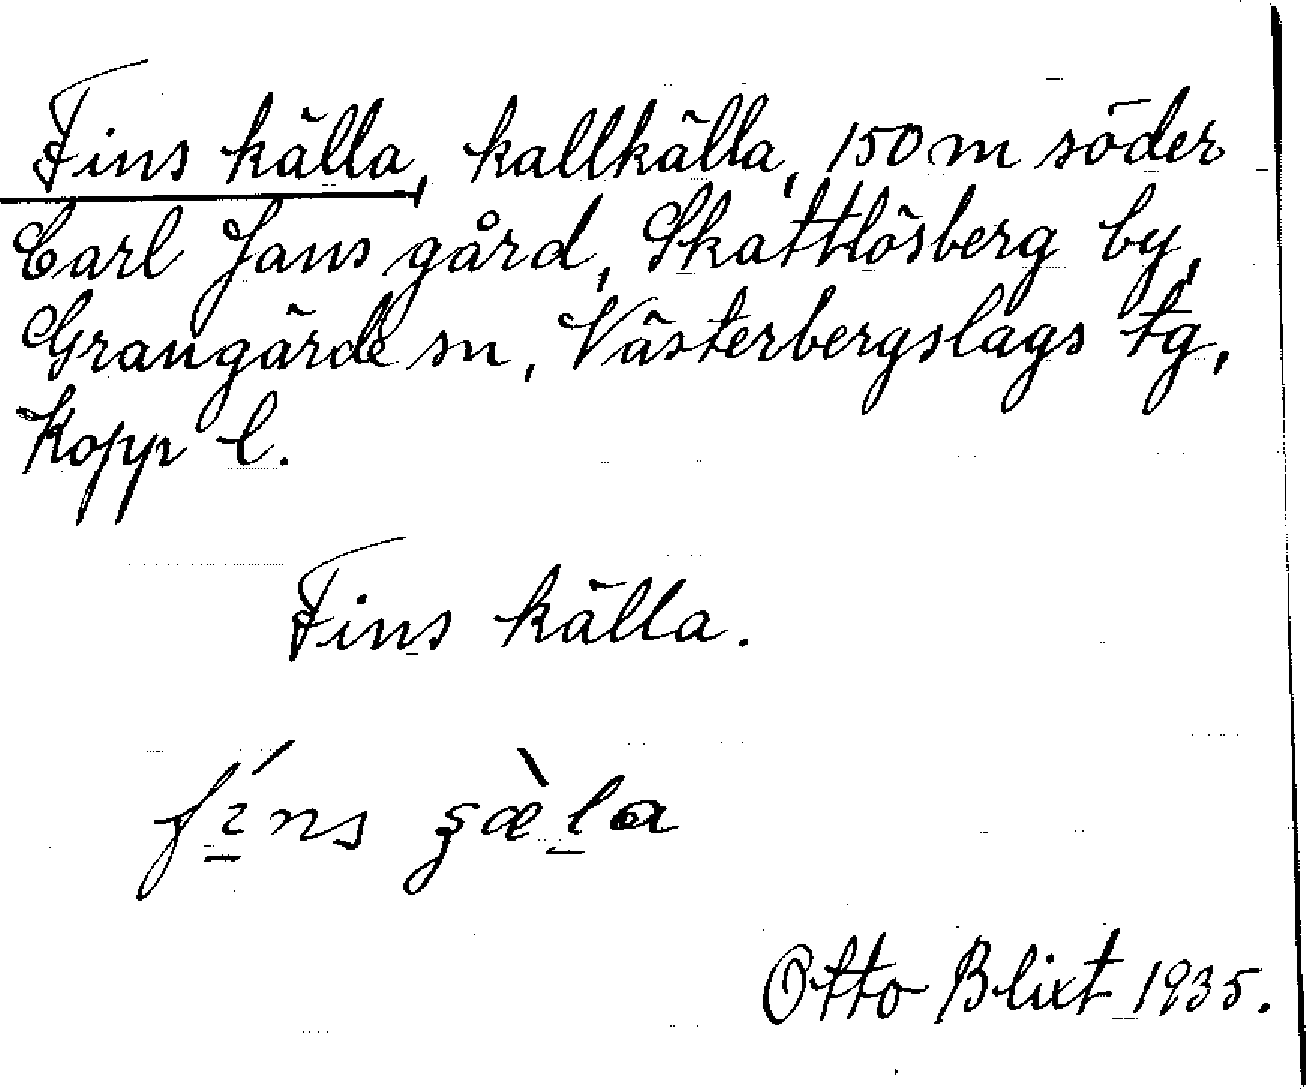 Fins källa, kallkälla, 150 m söder
Carl Jans gård, Skattlösberg by,
Grangärde sn, Västerbergslags tg,
Kopp l.
Fins källa.
Otto Blixt 1935.